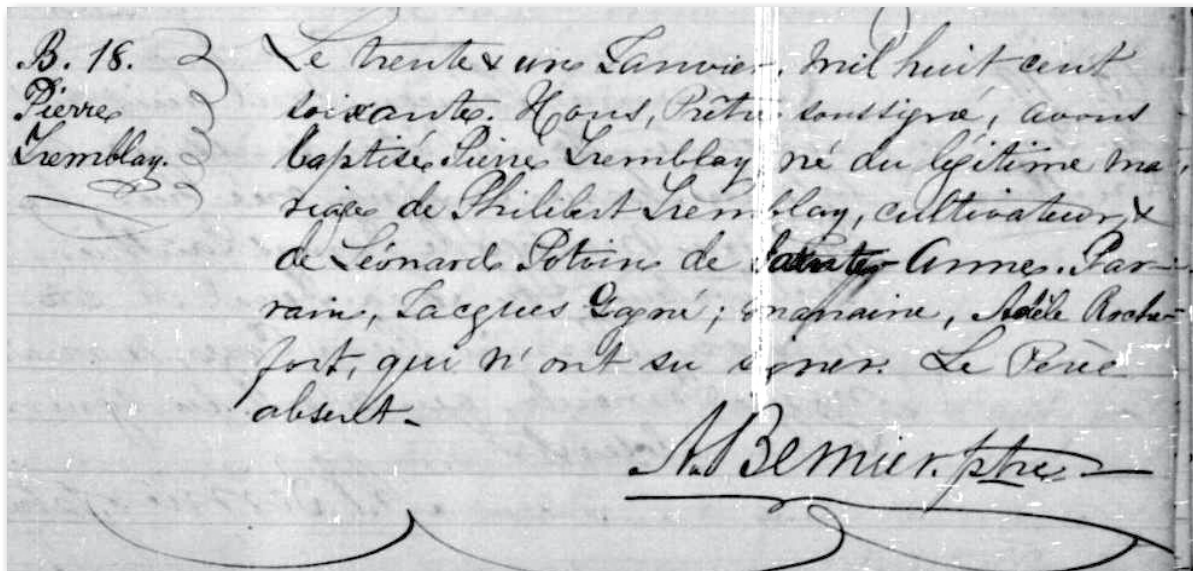 B. 18.
Pierre
Tremblay.
Le trente & un Janvier, mil huit cent
soixante. Nous, Prêtre soussigné, avons
baptisé Pierre Tremblay, né du légitime ma
riage de Philibert Tremblay, cultivateur, &
de Léonard Potvin de Sainte-Anne. Par-
rain, Jacques Gagné; maraine, Adèle Roche-
fort, qui n'ont su signer. Le Père
absent-
N. Bernier. ptre